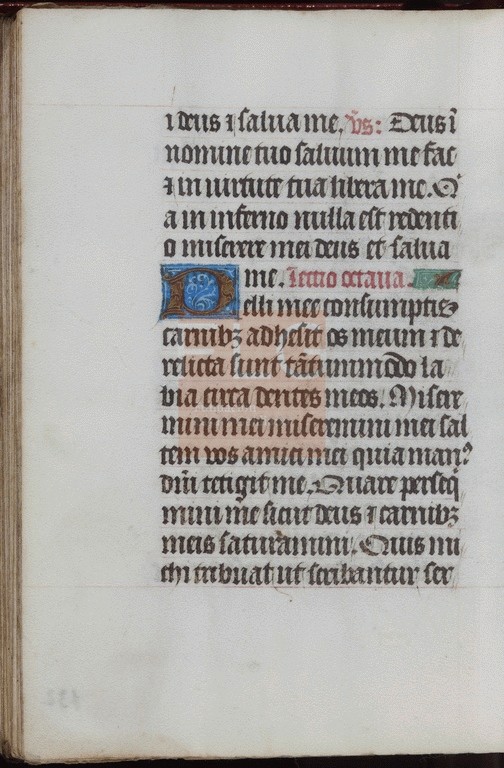 i deus ⁊ salua me. v̄s: Deus ī
nomine tuo saluum me fac
⁊ in uirtute tua libera me. Q̄
a in inferno nulla est redenti
o miserere mei deus et salua
me. Lectio octaua.
Pelli mee consumptis
carnibꝫ adhesit os meum ⁊ de
relicta sunt tātummodo la
bia circa dentes meos. Misere
mini mei miseremini mei sal
tem vos amici mei quia man9
dñi tetigit me. Quare perseq̄
mini me sicut deus ⁊ carnibꝫ
meis saturamini. Quis mi
chi tribuat ut scribantur ser